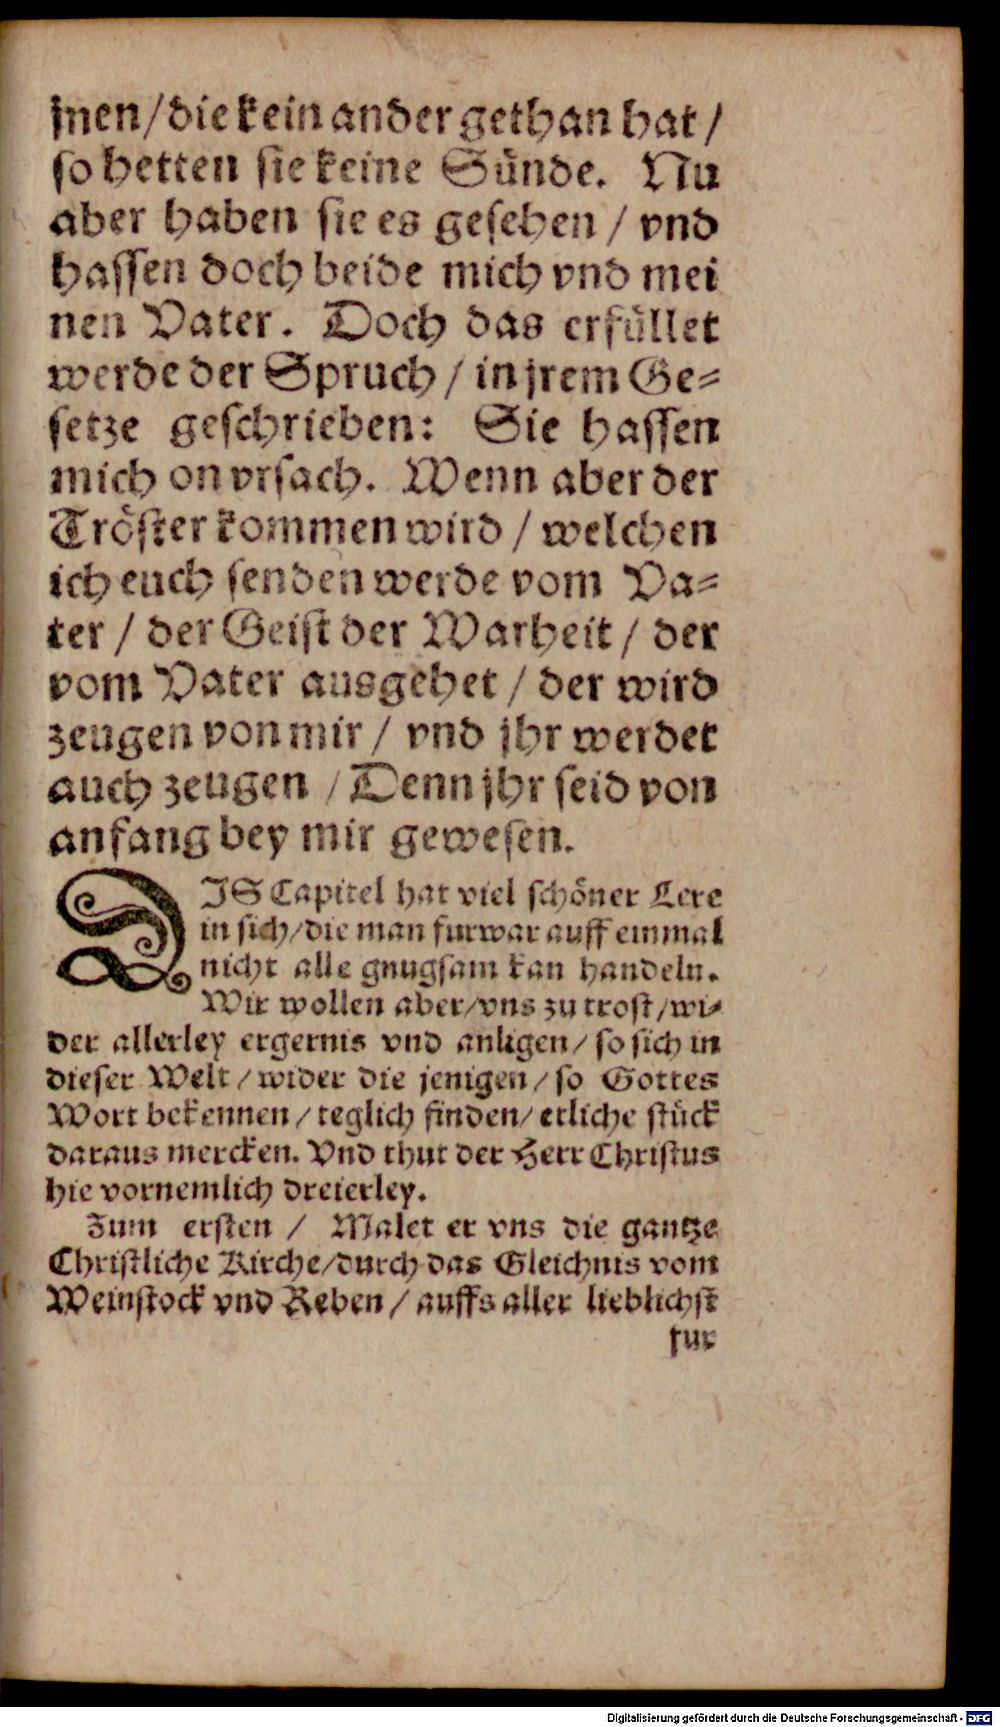 jnen / die kein ander gethan hat /
so hetten sie keine Sünde. Nu
aber haben sie es gesehen / vnd
hassen doch beide mich vnd mei
nen Vater. Doch das erfüllet
werde der Spruch / in jrem Ge=
setze geschrieben: Sie hassen
mich on vrsach. Wenn aber der
Tröster kommen wird / welchen
ich euch senden werde vom Va=
ter / der Geist der Warheit / der
vom Vater ausgehet / der wird
zeugen von mir / vnd jhr werdet
auch zeugen / Denn jhr seid von
anfang bey mir gewesen.
DJS Capitel hat viel schöner Lere
in sich / die man furwar auff einmal
nicht alle gnugsam kan handeln.
Wir wollen aber / vns zu trost / wi=
der allerley ergernis vnd anligen / so sich in
dieser Welt / wider die jenigen / so Gottes
Wort bekennen / teglich finden / etliche stück
daraus mercken. Vnd thut der Herr Christus
hie vornemlich dreierley.
Zum ersten / Malet er vns die gantze
Christliche Kirche / durch das Gleichnis vom
Weinstock vnd Reben / auffs aller lieblichst
fur
Digitalisierung gefördert durch die Deutsche Forschungsgemeinschaft - DFG